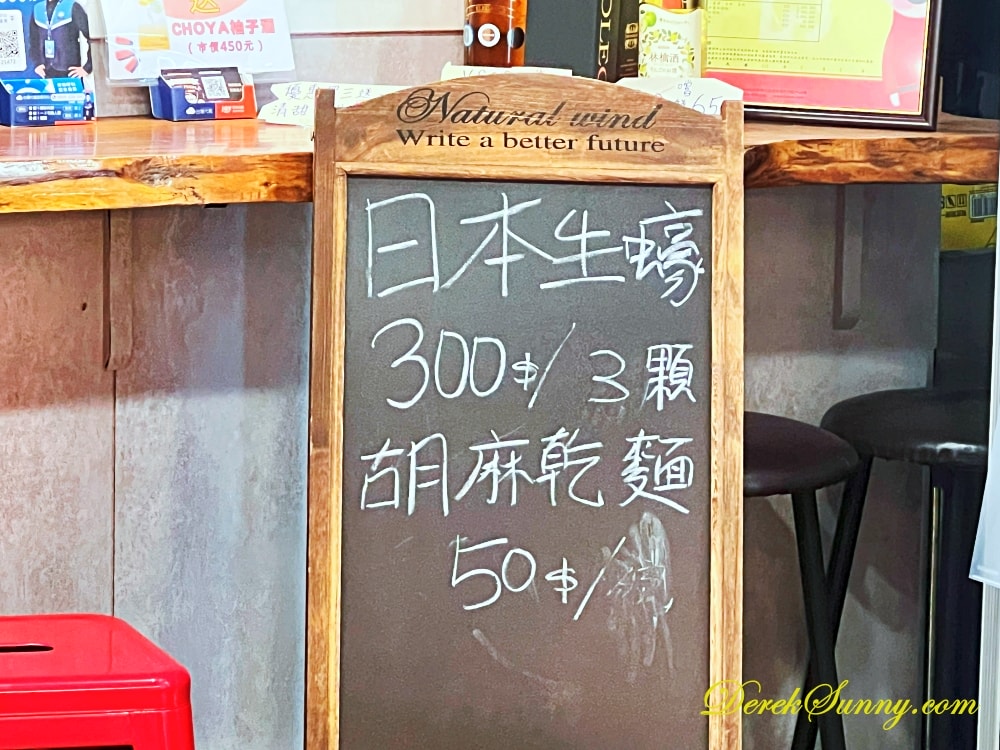 CHOYA柚子酒
(市價450元)
Natural wind
Write a better future
日本生蠔
300$/3顆
胡麻乾麵
50$/
DerekSunny.com